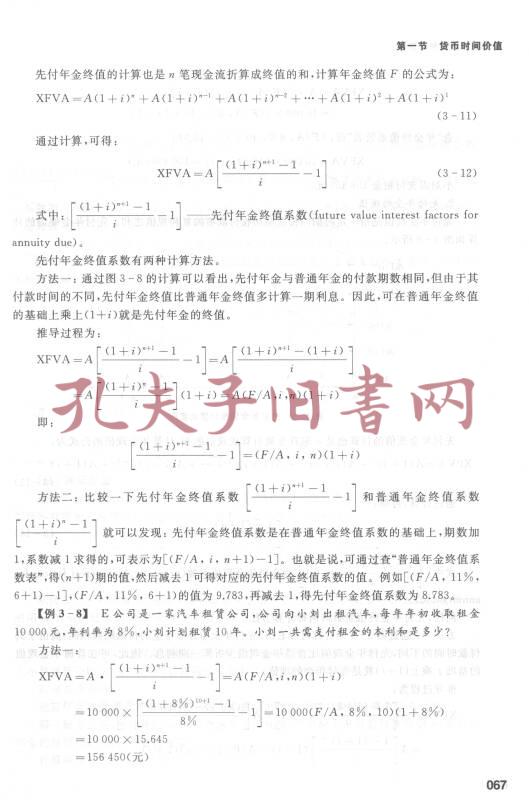 第一节 货币时间价值
先付年金终值的计算也是 n 笔现金流折算成终值的和,计算年金终值 F 的公式为:
XFVA=A(1+i)^n+A(1+i)^{n-1}+A(1+i)^{n-2}+…+A(1+i)^2+A(1+i)^1
(3-11)
通过计算,可得:
XFVA=A[((1+i)^{n+1}-1)/i-1] (3-12)
式中:[((1+i)^{n+1}-1)/i-1]——先付年金终值系数(future value interest factors for
annuity due)。
先付年金终值系数有两种计算方法。
方法一:通过图 3-8 的计算可以看出,先付年金与普通年金的付款期数相同,但由于其
付款时间的不同,先付年金终值比普通年金终值多计算一期利息。因此,可在普通年金终值
的基础上乘上(1+i)就是先付年金的终值。
推导过程为:
XFVA=A[((1+i)^{n+1}-1)/i-1]=A[((1+i)^{n+1}-(1+i))/i]
=A[((1+i)^n-1)/i](1+i)=A(F/A,i,n)(1+i)
孔夫子旧书网
即:
[((1+i)^{n+1}-1)/i-1]=(F/A,i,n)(1+i)
方法二:比较一下先付年金终值系数[((1+i)^{n+1}-1)/i-1]和普通年金终值系数
[((1+i)^n-1)/i]就可以发现:先付年金终值系数是在普通年金终值系数的基础上,期数加
1,系数减 1 求得的,可表示为[(F/A,i,n+1)-1]。也就是说,可通过查“普通年金终值系
数表”,得(n+1)期的值,然后减去 1 可得对应的先付年金终值系数的值。例如[(F/A,11%,
6+1)-1],(F/A,11%,6+1)的值为 9.783,再减去 1,得先付年金终值系数为 8.783。
【例 3-8】 E公司是一家汽车租赁公司,公司向小刘出租汽车,每年年初收取租金
10 000 元,年利率为 8%,小刘计划租赁 10 年。小刘一共需支付租金的本利和是多少?
方法一:
XFVA=A·[((1+i)^{n+1}-1)/i-1]=A(F/A,i,n)(1+i)
=10 000×[((1+8%)^{10+1}-1)/8%-1]=10 000(F/A,8%,10)(1+8%)
=10 000×15.645
=156 450(元)
067